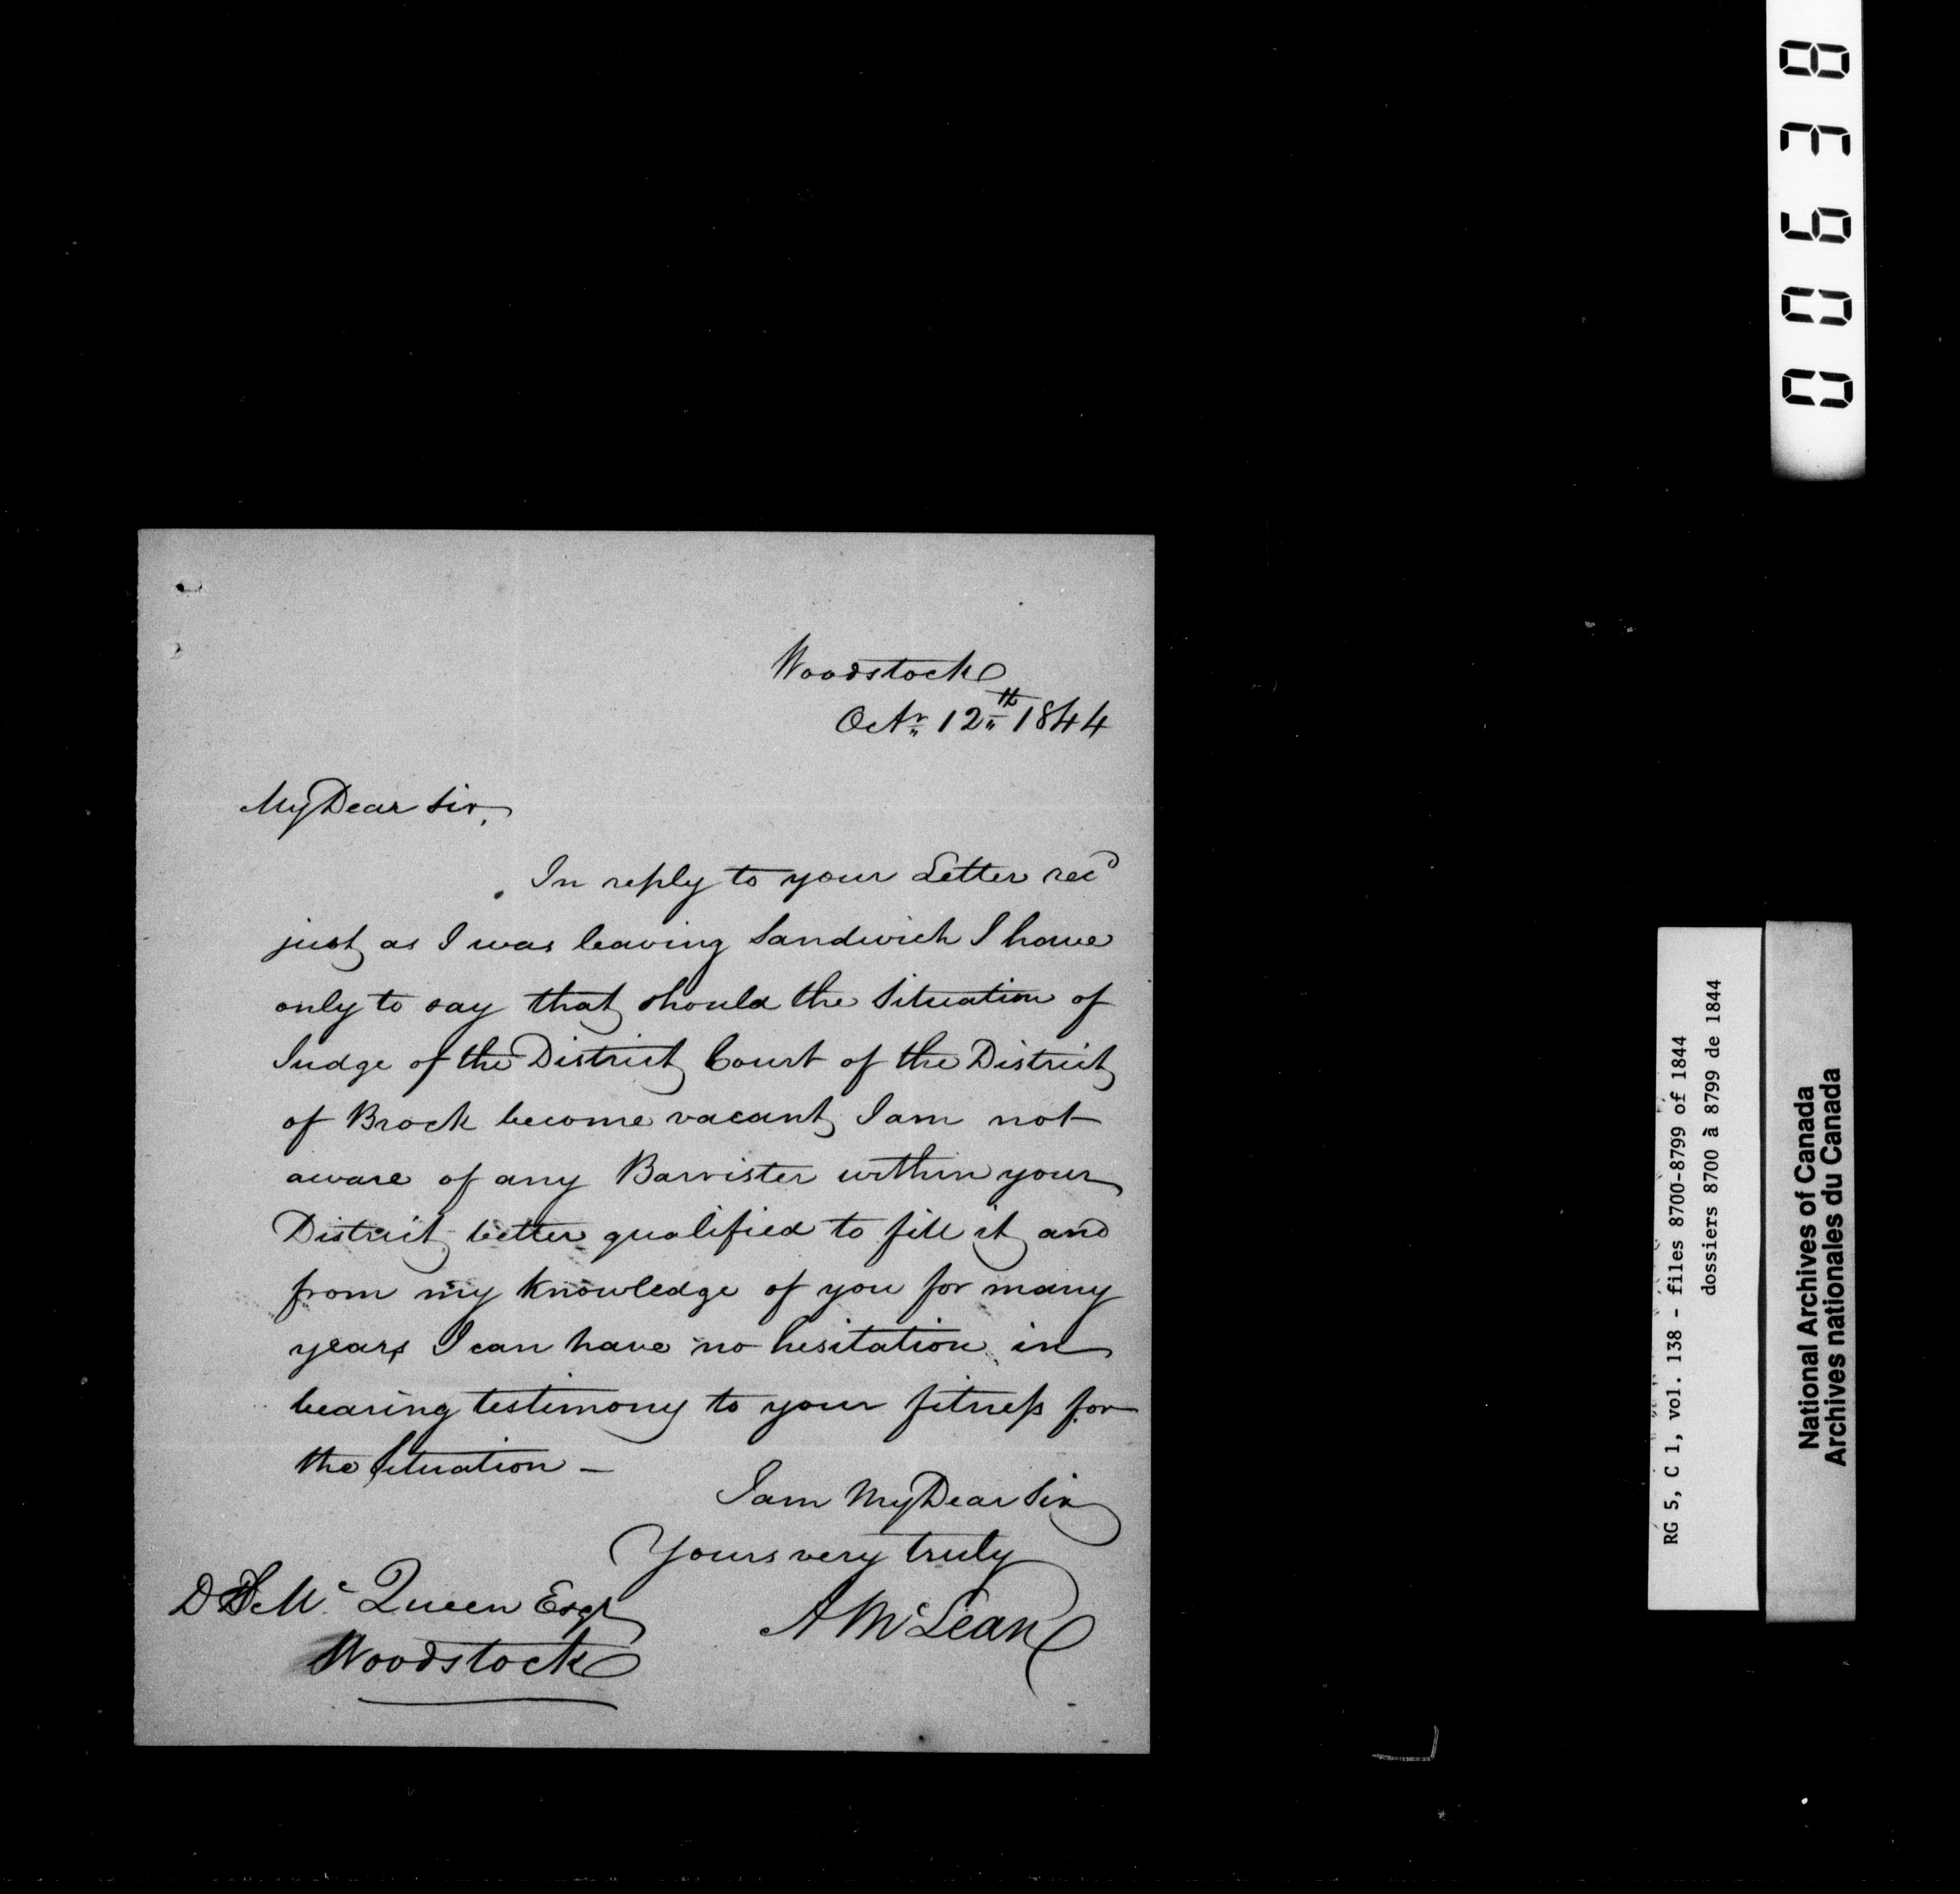 00638
Woodstock
Octr 12th 1844
My Dear Sir,
In reply to your Letter recd
just as I was leaving Sandwich I have
only to say that should the Situation of
Judge of the District Court of the District
of Brock become vacant I am not
aware of any Barrister within your
District better qualified to fill it and
from my knowledge of you for many
years I can have no hesitation in
bearing testimony to your fitness for
the Situation –
I am My Dear Sir
Yours very truly
A McLean
Mc Queen Esqr
Woodstock
RG 5, C 1, vol. 138 - files 8700-8799 of 1844
dossiers 8700 à 8799 de 1844
National Archives of Canada
Archives nationales du Canada